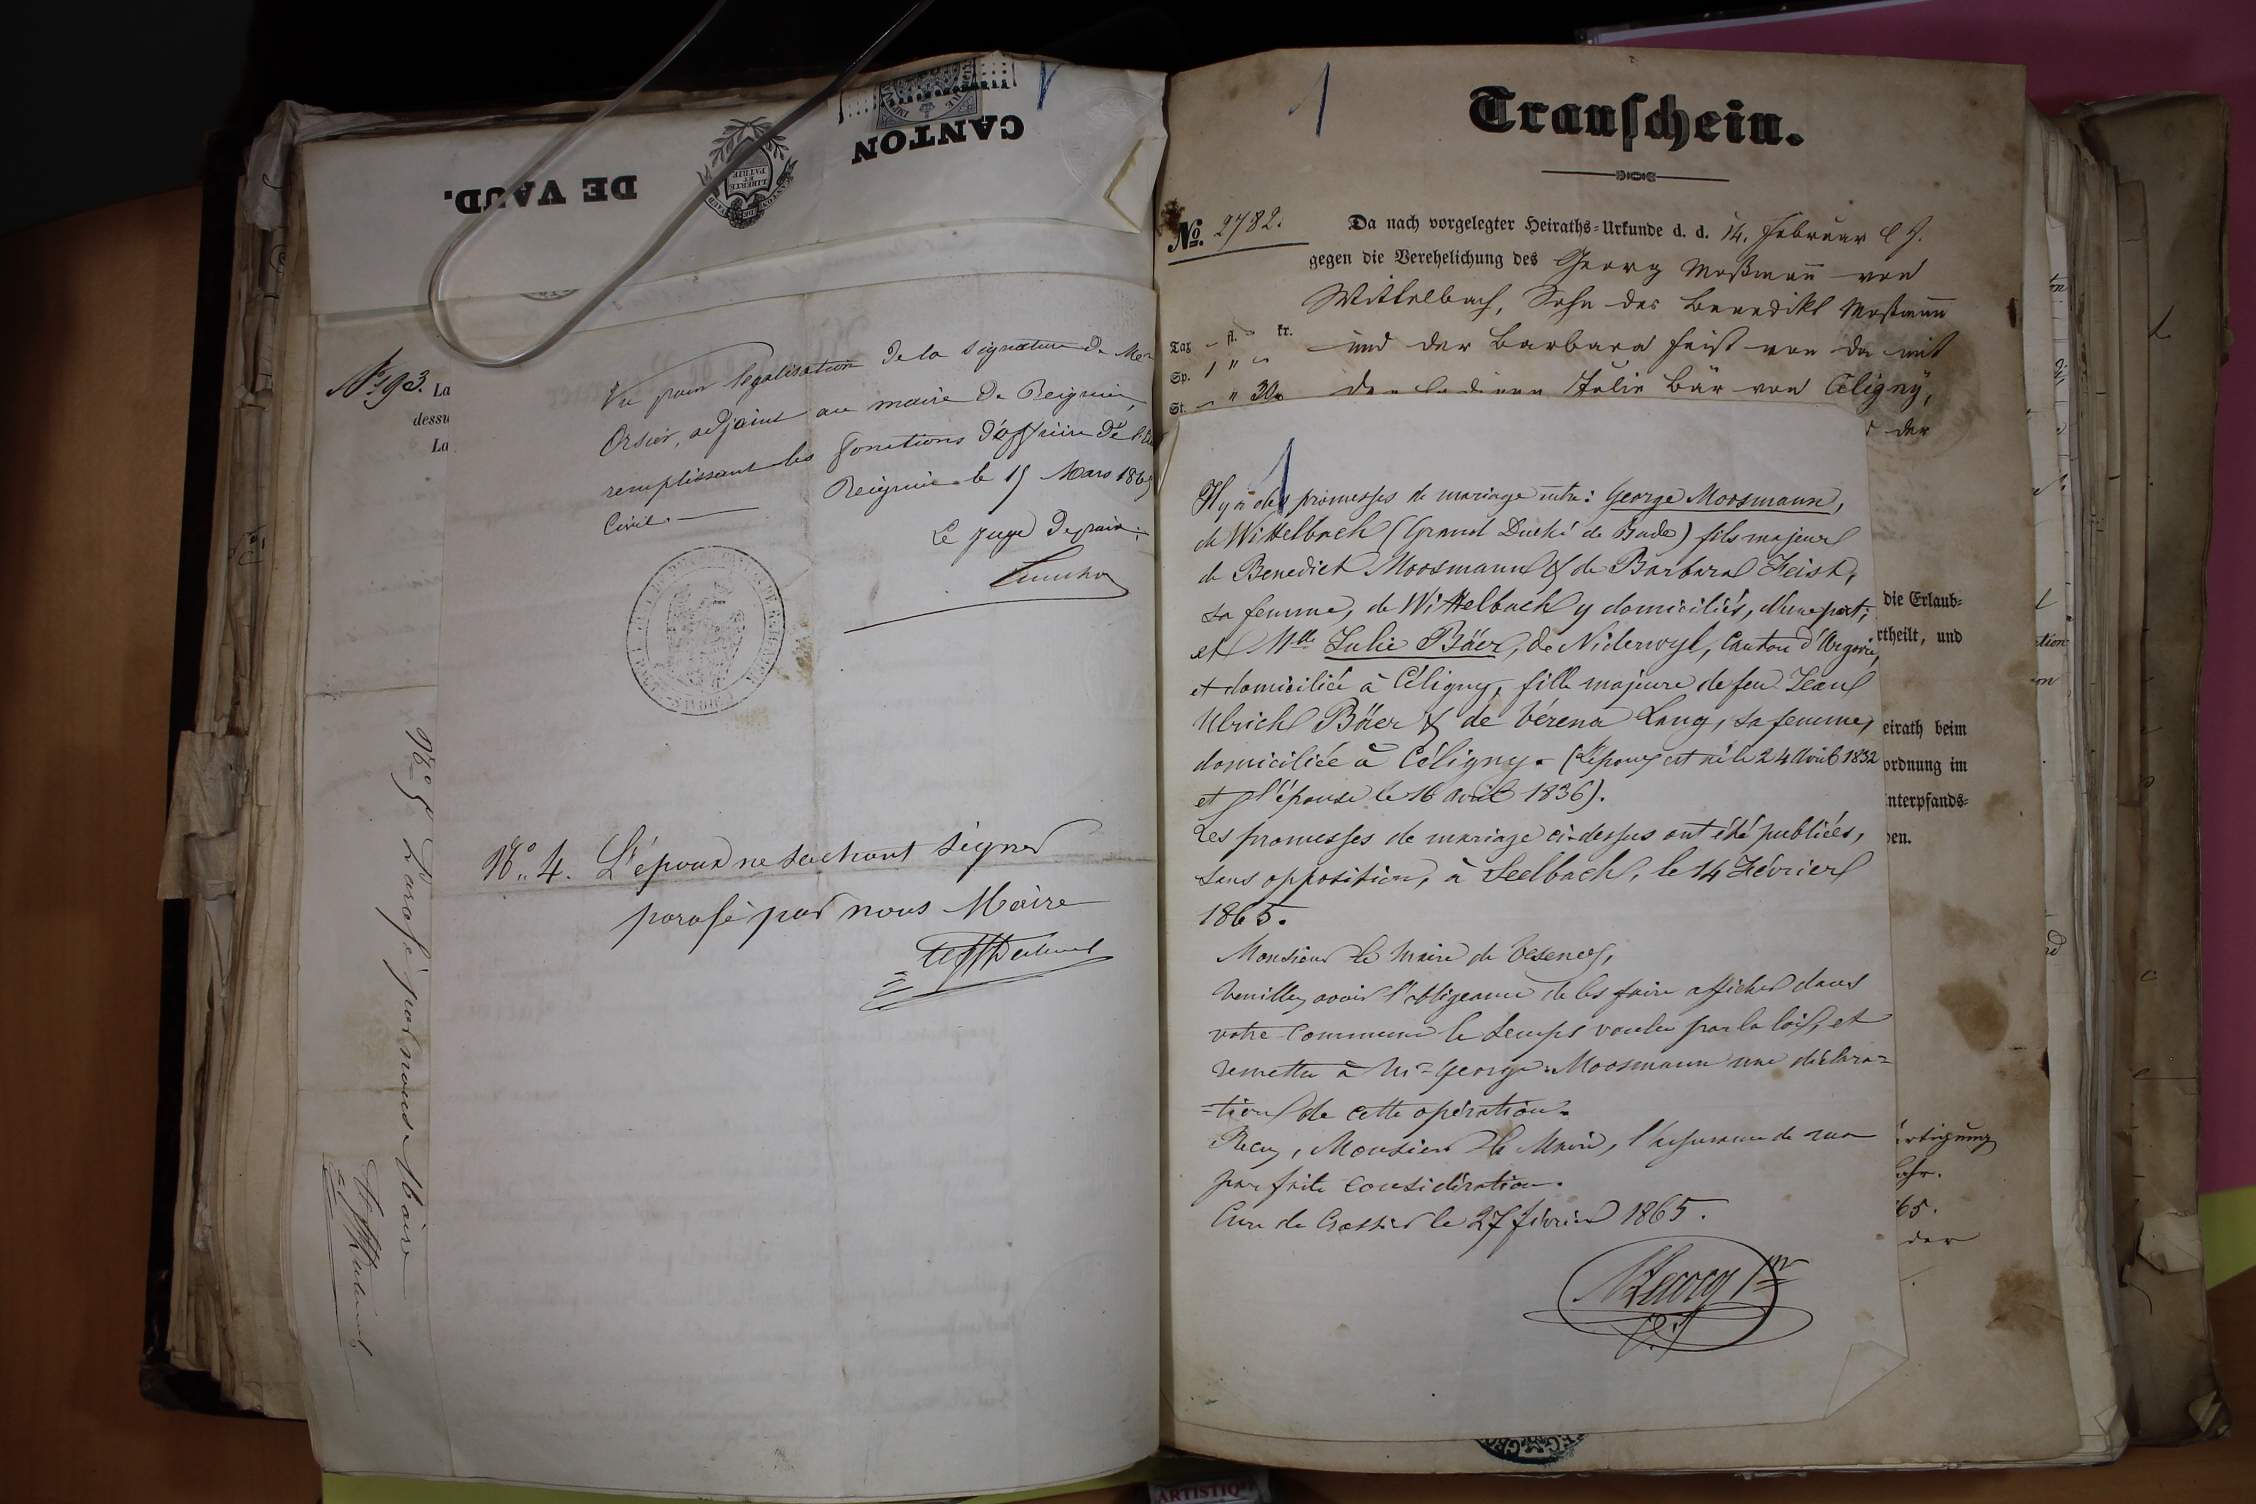 CANTON
DE VAUD.
LIBERTÉ
ET
PATRIE
Nº 93. La
dessu
La
Vu pour légalisation de la signature de Mon
Orsier, adjoint au maire de Reignier,
remplissant les fonctions d'officier de l'Etat
Civil.
Reignier le 15 Mars 1865
Le Juge de paix:
Nº 4. L'époux ne sachant signer
parafé par nous Maire
Nº 5 Parafé par nous Maire
1
Trauschein.
Nº 2782.
Da nach vorgelegter Heiraths-Urkunde d. d. 14. Februar l J.
gegen die Verehelichung des Georg Moßmann von
Wittelbach, Sohn des Benedikt Moßmann
und der Barbara Feist von da mit
der ledigen Julie Bär von Céligny,
der
Tax – fl. – kr.
Sp. 1 " –
St. – " 30
die Erlaub-
rtheilt, und
eirath beim
ordnung im
nterpfands-
en.
65.
der
1
Il y a des promesses de mariage entre: George Moosmann,
de Wittelbach (Grand Duché de Bade) fils majeur
de Benedict Moosmann & de Barbara Feist,
sa femme, de Wittelbach y domiciliés, d'une part;
et Mlle Julie Bäer, de Niderwyl, Canton d'Argovie,
et domiciliée à Céligny, fille majeure de feu Jean
Ulrich Bäer & de Vérena Lang, sa femme,
domiciliée à Céligny. (L'époux est né le 24 Avril 1832
et l'épouse le 16 avril 1836).
Les promesses de mariage ci-dessus ont été publiées,
sans opposition, à Seelbach, le 14 Février
1865.
Monsieur le Maire de Vesenex,
Veuillez avoir l'obligeance de les faire afficher dans
votre commune le temps voulu par la loi, et
remettre à Mr George Moosmann une déclara=
=tion de cette opération.
Recev, Monsieur le Maire, l'assurance de ma
parfaite considération.
Cure de Crassier le 27 février 1865.
ARTISTIQ